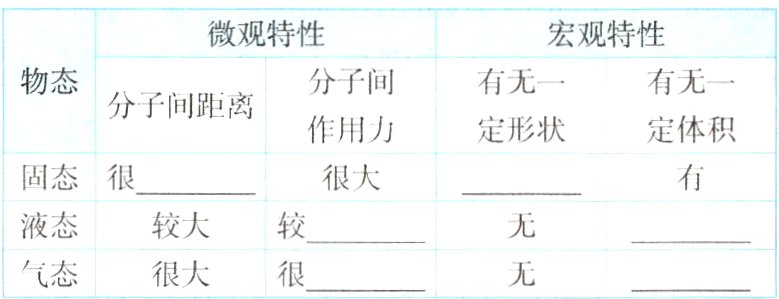 微观特性 宏观特性
物态 分子间距离 分子间作用力 有无一定形状 有无一定体积
固态 很________ 很大 ________ 有
液态 较大 较________ 无 ________
气态 很大 很________ 无 ________